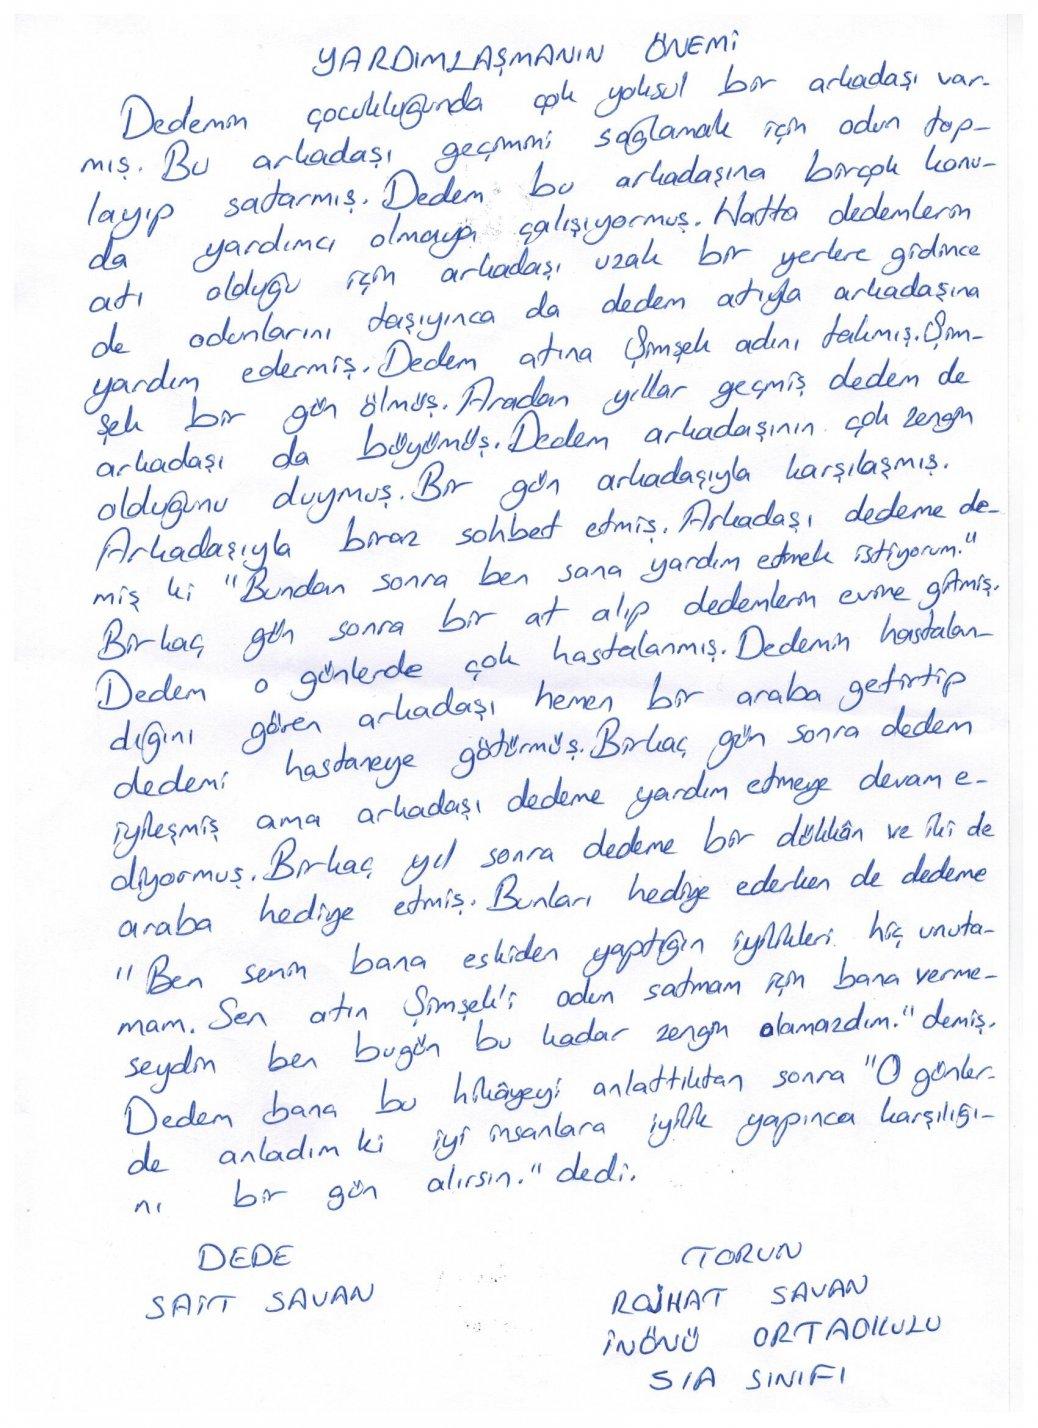 YARDIMLAŞMANIN ÖNEMİ
Dedemin çocukluğunda çok yoksul bir arkadaşı var-
mış. Bu arkadaşı geçimini sağlamak için odun top-
layıp satarmış. Dedem bu arkadaşına birçok konu-
da yardımcı olmaya çalışıyormuş. Hatta dedemlerin
atı olduğu için arkadaşı uzak bir yerlere gidince
de odunlarını taşıyınca da dedem atıyla arkadaşına
yardım edermiş. Dedem atına Şimşek adını takmış. Şim-
şek bir gün ölmüş. Aradan yıllar geçmiş dedem de
arkadaşı da büyümüş. Dedem arkadaşının çok zengin
olduğunu duymuş. Bir gün arkadaşıyla karşılaşmış.
Arkadaşıyla biraz sohbet etmiş. Arkadaşı dedeme de-
miş ki "Bundan sonra ben sana yardım etmek istiyorum."
Birkaç gün sonra bir at alıp dedemlerin evine gitmiş.
Dedem o günlerde çok hastalanmış. Dedemin hastalan-
dığını gören arkadaşı hemen bir araba getirtip
dedemi hastaneye götürmüş. Birkaç gün sonra dedem
iyileşmiş ama arkadaşı dedeme yardım etmeye devam e-
diyormuş. Birkaç yıl sonra dedeme bir dükkân ve iki de
araba hediye etmiş. Bunları hediye ederken de dedeme
"Ben senin bana eskiden yaptığın iyilikleri hiç unuta-
mam. Sen atın Şimşek'i odun satmam için bana verme-
seydin ben bugün bu kadar zengin olamazdım." demiş.
Dedem bana bu hikâyeyi anlattıktan sonra "O günler-
de anladım ki iyi insanlara iyilik yapınca karşılığı-
nı bir gün alırsın." dedi.
DEDE
SAİT SAVAN
TORUN
ROJHAT SAVAN
İNÖNÜ ORTAOKULU
5/A SINIFI